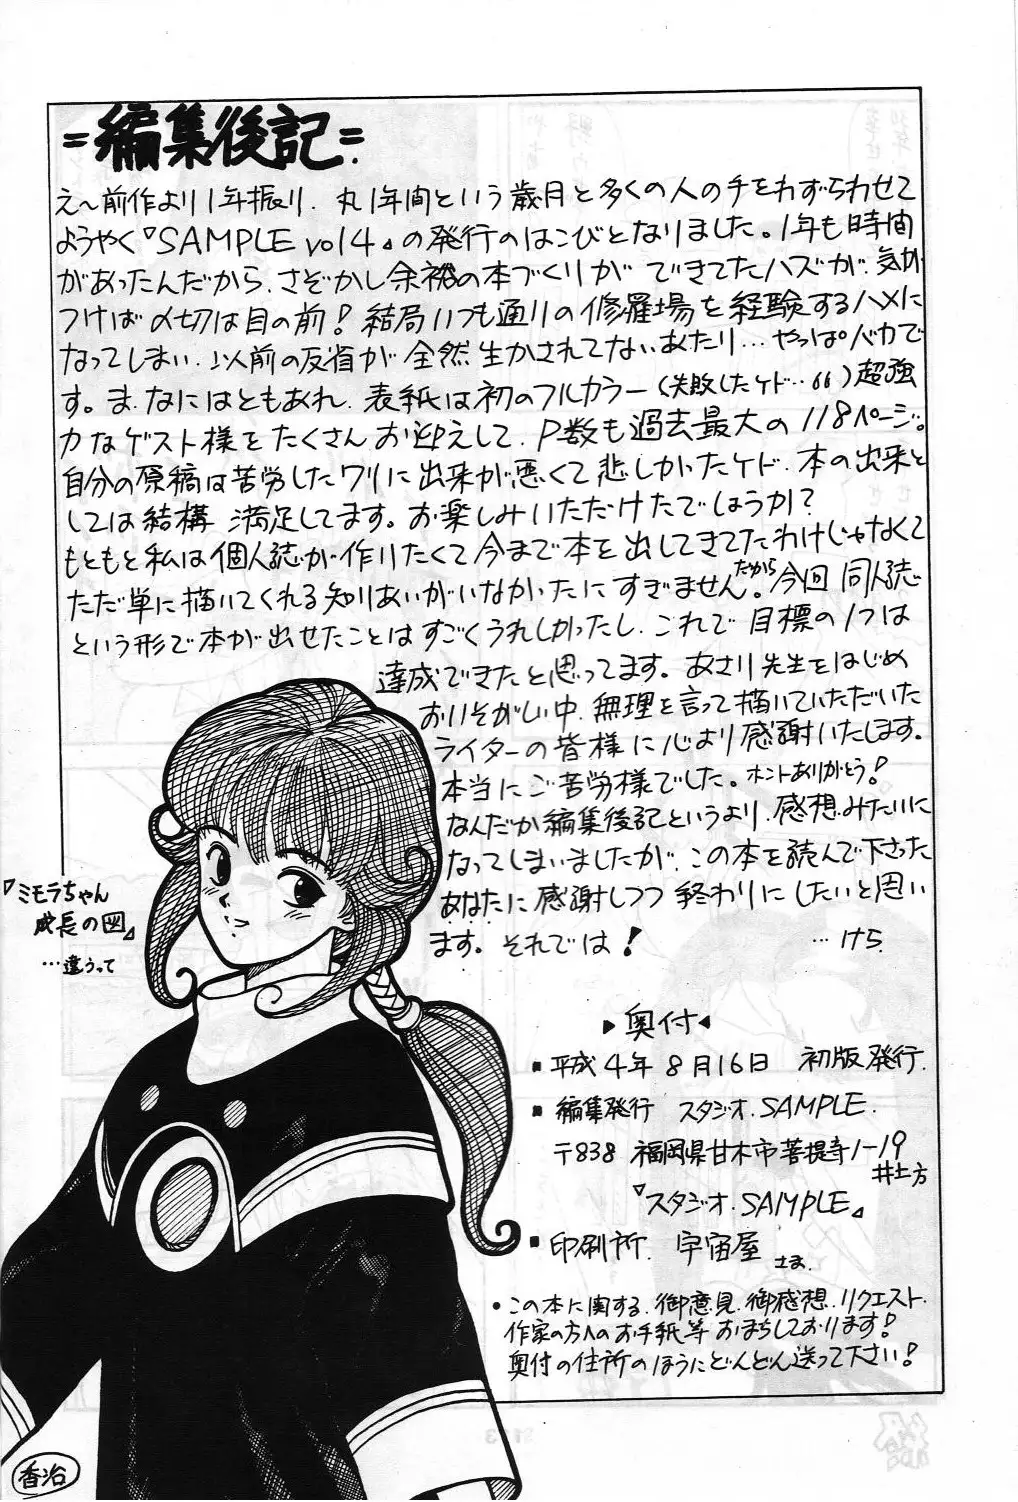 =編集後記=
え〜前作より1年振り、丸1年間という歳月と多くの人の手をわずらわせて
ようやく『SAMPLE vol4』の発行のはこびとなりました。1年も時間
があったんだから、さぞかし余裕の本づくりができてたハズが、気が
つけば〆切は目の前!結局いつも通りの修羅場を経験するハメに
なってしまい、以前の反省が全然生かされてないあたり…やっぱバカで
す。ま、なにはともあれ、表紙は初のフルカラー(失敗したケド…66)超強
力なゲスト様をたくさんお迎えして、P数も過去最大の118ページ。
自分の原稿は苦労したワリに出来が悪くて悲しかったケド、本の出来と
しては結構満足してます。お楽しみいただけたでしょうか?
もともと私は個人誌が作りたくて今まで本を出してきてたわけじゃなくて
ただ単に描いてくれる知りあいがいなかったにすぎません。だから今回同人誌
という形で本が出せたことはすごくうれしかったし、これで目標の1つは
達成できたと思ってます。あさり先生をはじめ
おいそがしい中、無理を言って描いていただいた
ライターの皆様に心より感謝いたします。
本当にご苦労様でした。ホントありがとう!
なんだか編集後記というより、感想みたいに
なってしまいましたが、この本を読んで下さった
あなたに感謝しつつ終わりにしたいと思い
ます。それでは!
…けら
『ミモラちゃん
成長の図』
…違うって
▶奥付◀
▪平成4年8月16日 初版発行
▪編集発行 スタジオ.SAMPLE.
〒838 福岡県甘木市菩提寺1-19
井土方
『スタジオ.SAMPLE』
▪印刷所. 宇宙屋さま.
•この本に関する、御意見、御感想、リクエスト、
作家の方へのお手紙等おまちしております!
奥付の住所のほうにどんどん送って下さい!
香治